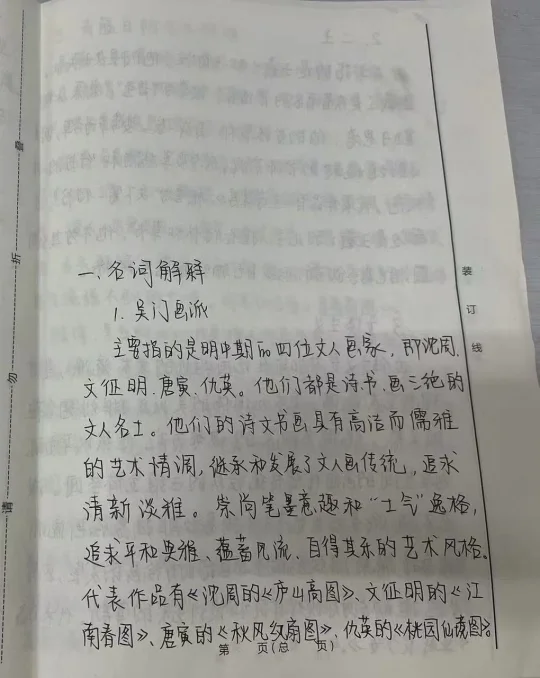 一.名词解释
1.吴门画派
主要指的是明中期的四位文人画家，即沈周.
文征明.唐寅.仇英。他们都是诗.书.画三绝的
文人名士。他们的诗文书画具有高洁而儒雅
的艺术情调，继承和发展了文人画传统，追求
清新淡雅。崇尚笔墨意趣和“士气”逸格，
追求平和典雅、蕴蓄风流、自得其乐的艺术风格。
代表作品有《沈周的《庐山高图》、文征明的《江
南春图》、唐寅的《秋风纨扇图》、仇英的《桃园仙境图》。
第 页(总 页)
装订线
请勿折叠